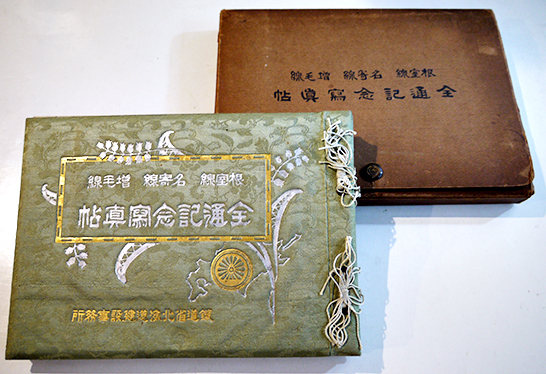 根室線 名寄線 增毛線
全通記念寫眞帖
根室線 名寄線 增毛線
全通記念寫眞帖
鐵道省北海道建設事務所